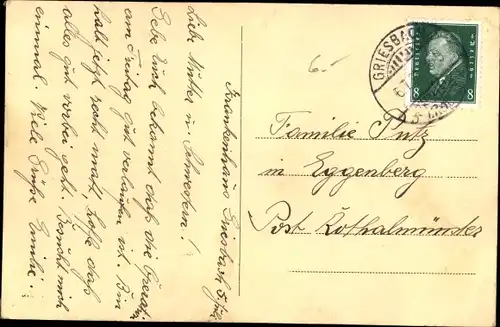 Krankenhaus Griesbach 5. Juli
Liebe Mutter u. Schwestern!
Gebe Euch bekannt daß die Operat.
am Freitag gut verlaufen ist. Bin
halt jetzt recht matt, hoffe daß
alles gut vorbei geht. Besucht mich
einmal. Viele Grüße Emilie.
6.-
GRIESBACH
8 8
Familie Putz
in Eggenberg
Post Rotthalmünster